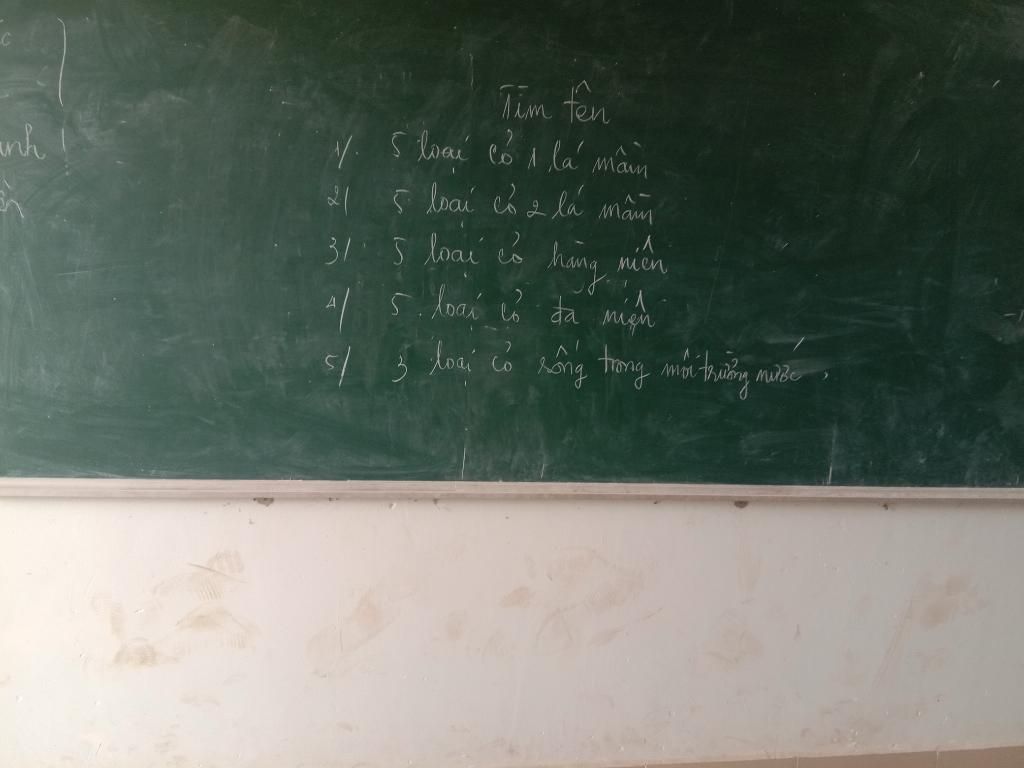 Tìm tên
1/. 5 loại cỏ 1 lá mầm
2/ 5 loại cỏ 2 lá mầm
3/ 5 loại cỏ hàng niên
4/ 5 loại cỏ đa niên
5/ 3 loại cỏ sống trong môi trường nước,